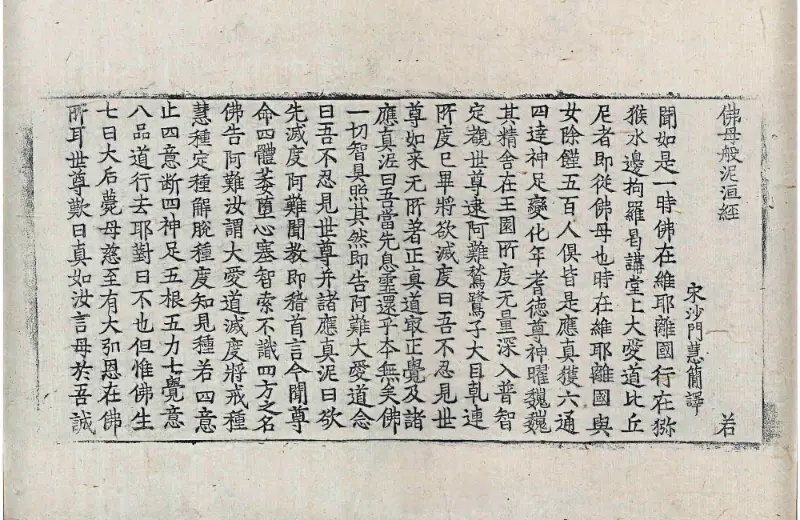 佛母般泥洹經
宋沙門慧簡譯 若
聞如是一時佛在維耶離國行在獼
猴水邊拘羅曷講堂上大愛道比丘
尼者即從佛母也時在維耶離國與
女除饉五百人俱皆是應真獲六通
四達神足變化年耆德尊神曜巍巍
其精舍在王園所度无量深入普智
定觀世尊逮阿難鶖鷺子大目乹連
所度已畢將欲滅度曰吾不忍見世
尊如來无所著正真道㝡正覺及諸
應真泥曰吾當先息靈還乎本無矣佛
一切智具照其然即告阿難大愛道念
曰吾不忍見世尊并諸應真泥曰欲
先滅度阿難聞教即稽首言今聞尊
命四體萎墮心塞智索不識四方之名
佛告阿難汝謂大愛道滅度將戒種
慧種定種解脫種度知見種若四意
止四意断四神足五根五力七覺意
八品道行去耶對曰不也但惟佛生
七日大后薨母慈至有大弘恩在佛
所耳世尊歎曰真如汝言母於吾誠